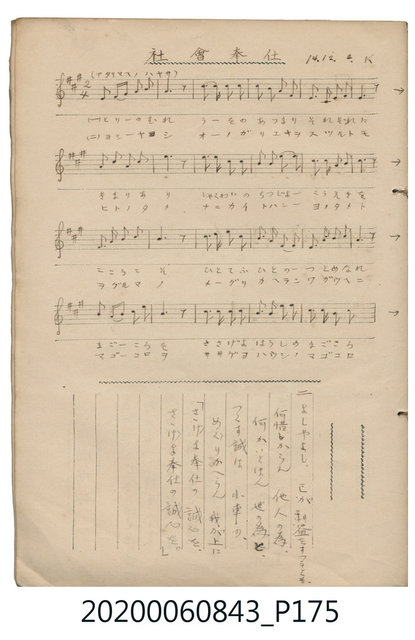 社會奉仕 14.12.2. K
(アタリマエノハヤサ)
(一)とりーのむれ うーをのあつまり それぞれに
(二)ヨシーヤヨシ オーノガリエキヲスツルトモ
きまりあり しゃくわいのちつじよー こうえきを
ヒトノタメ ナニカイトハンー ヨノタメト
こころこそ ひとてふひとのーつとめなれ
ヲグルマノ メーグリカヘランワガウヘニ
まごーころを ささげよほうしのまごころ
マゴーコロヲ ササゲヨホウシノマゴコロ
二、よしやよし、己が利益をすつるとも、
何惜しからん 他人の為、
何かいとはん 世の為と、
つくす誠は 小車の、
めぐりかへらん 我が上に
「さゝげよ奉仕の誠心を、
さゝげよ奉仕の誠心を。」
20200060843_P175